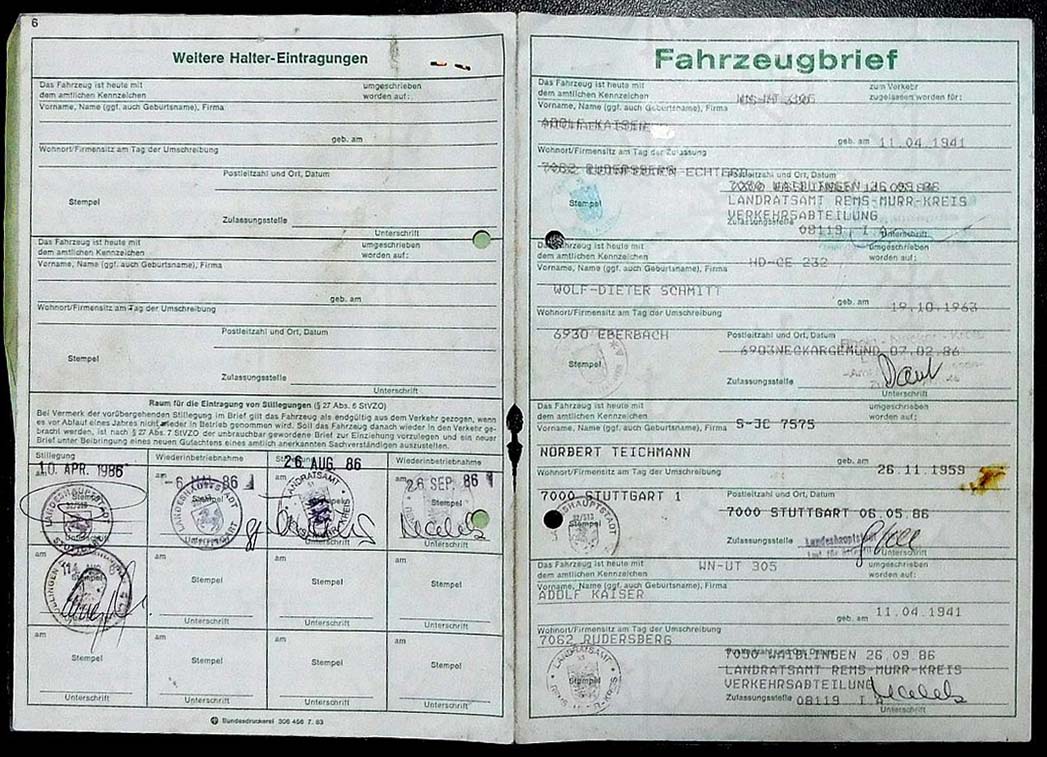 6
Weitere Halter-Eintragungen
Das Fahrzeug ist heute mit
dem amtlichen Kennzeichen
umgeschrieben
worden auf:
Vorname, Name (ggf. auch Geburtsname), Firma
geb. am
Wohnort/Firmensitz am Tag der Umschreibung
Postleitzahl und Ort, Datum
Stempel
Zulassungsstelle
Unterschrift
Das Fahrzeug ist heute mit
dem amtlichen Kennzeichen
umgeschrieben
worden auf:
Vorname, Name (ggf. auch Geburtsname), Firma
geb. am
Wohnort/Firmensitz am Tag der Umschreibung
Postleitzahl und Ort, Datum
Stempel
Zulassungsstelle
Unterschrift
Raum für die Eintragung von Stillegungen (§ 27 Abs. 6 StVZO)
Bei Vermerk der vorübergehenden Stillegung im Brief gilt das Fahrzeug als endgültig aus dem Verkehr gezogen, wenn
es vor Ablauf eines Jahres nicht wieder in Betrieb genommen wird. Soll das Fahrzeug danach wieder in den Verkehr ge-
bracht werden, ist nach § 27 Abs. 7 StVZO der unbrauchbar gewordene Brief zur Einziehung vorzulegen und ein neuer
Brief unter Beibringung eines neuen Gutachtens eines amtlich anerkannten Sachverständigen auszustellen.
Stillegung
Wiederinbetriebnahme
Wiederinbetriebnahme
10. APR. 1986
6. MAI 86
26. AUG. 86
26. SEP. 86
LANDESHAUPTSTADT
STUTTGART
LANDESHAUPTSTADT
LANDRATSAMT
Stempel
Unterschrift
am
am
am
am
Stempel
Stempel
Stempel
Stempel
Unterschrift
Unterschrift
Unterschrift
am
am
am
am
Stempel
Stempel
Stempel
Stempel
Unterschrift
Unterschrift
Unterschrift
Unterschrift
Bundesdruckerei 306 456 7. 83
Fahrzeugbrief
Das Fahrzeug ist heute mit
dem amtlichen Kennzeichen
zum Verkehr
zugelassen worden für:
Vorname, Name (ggf. auch Geburtsname), Firma
ADOLF KAISER
geb. am 11.04.1941
Wohnort/Firmensitz am Tag der Zulassung
7062 RUDERSBERG
Postleitzahl und Ort, Datum
7050 WAIBLINGEN 26.09.86
Stempel
LANDRATSAMT REMS-MURR-KREIS
VERKEHRSABTEILUNG
Zulassungsstelle
08119 I A
Unterschrift
Das Fahrzeug ist heute mit
dem amtlichen Kennzeichen
HD-CE 232
umgeschrieben
worden auf:
Vorname, Name (ggf. auch Geburtsname), Firma
WOLF-DIETER SCHMITT
geb. am 19.10.1963
Wohnort/Firmensitz am Tag der Umschreibung
6930 EBERBACH
Postleitzahl und Ort, Datum
6903NECKARGEMÜND 07.02.86
Stempel
Zulassungsstelle
Unterschrift
Das Fahrzeug ist heute mit
dem amtlichen Kennzeichen
S-JC 7575
umgeschrieben
worden auf:
Vorname, Name (ggf. auch Geburtsname), Firma
NORBERT TEICHMANN
geb. am 26.11.1959
Wohnort/Firmensitz am Tag der Umschreibung
7000 STUTTGART 1
Postleitzahl und Ort, Datum
7000 STUTTGART 06.05.86
Stempel
Zulassungsstelle
Unterschrift
Das Fahrzeug ist heute mit
dem amtlichen Kennzeichen
WN-UT 305
umgeschrieben
worden auf:
Vorname, Name (ggf. auch Geburtsname), Firma
ADOLF KAISER
geb. am 11.04.1941
Wohnort/Firmensitz am Tag der Umschreibung
7062 RUDERSBERG
7050 WAIBLINGEN 26.09.86
LANDRATSAMT
Stempel
REMS-MURR-KREIS
LANDRATSAMT REMS-MURR-KREIS
VERKEHRSABTEILUNG
Zulassungsstelle 08119 I A
Unterschrift